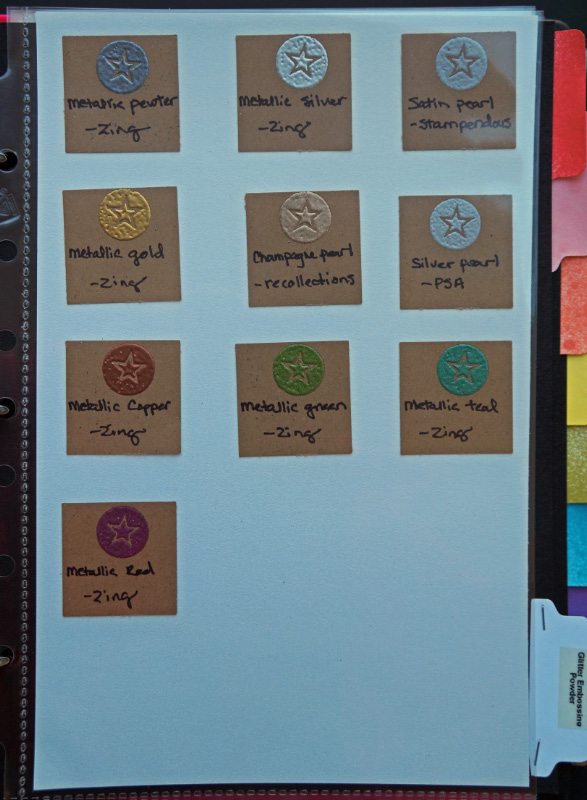 Metallic pewter
-Zing
Metallic Silver
-Zing
Satin pearl
-Stampendous
Metallic gold
-Zing
Champagne pearl
-recollections
Silver pearl
-PSA
Metallic Copper
-Zing
Metallic green
-Zing
Metallic teal
-Zing
Metallic Red
-Zing
Glitter Embossing
Powder